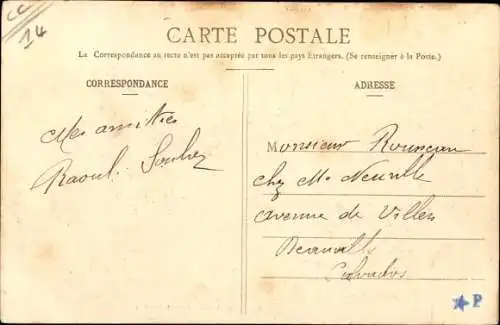 CC
14
CARTE POSTALE
La Correspondance au recto n'est pas acceptée par tous les pays Étrangers. (Se renseigner à la Poste.)
CORRESPONDANCE
ADRESSE
Mes amitiés
Raoul
Monsieur
chez Mr Neuville
avenue de Villers
Calvados
P